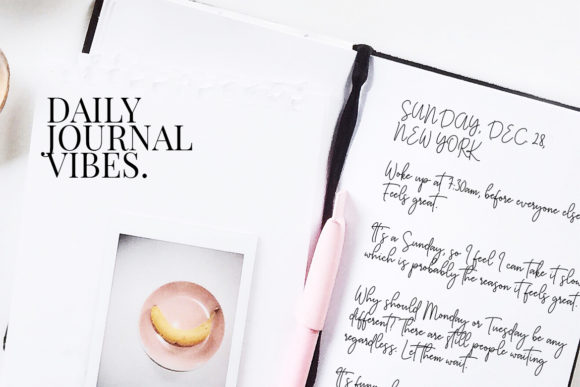 DAILY
JOURNAL
VIBES.
SUNDAY, DEC 28,
NEW YORK
Woke up at 7:30am, before everyone else
Feels great.
It's a Sunday, so I feel I can take it slow
which is probably the reason it feels great.
Why should Monday or Tuesday be any
different? There are still people waiting
regardless. Let them wait.